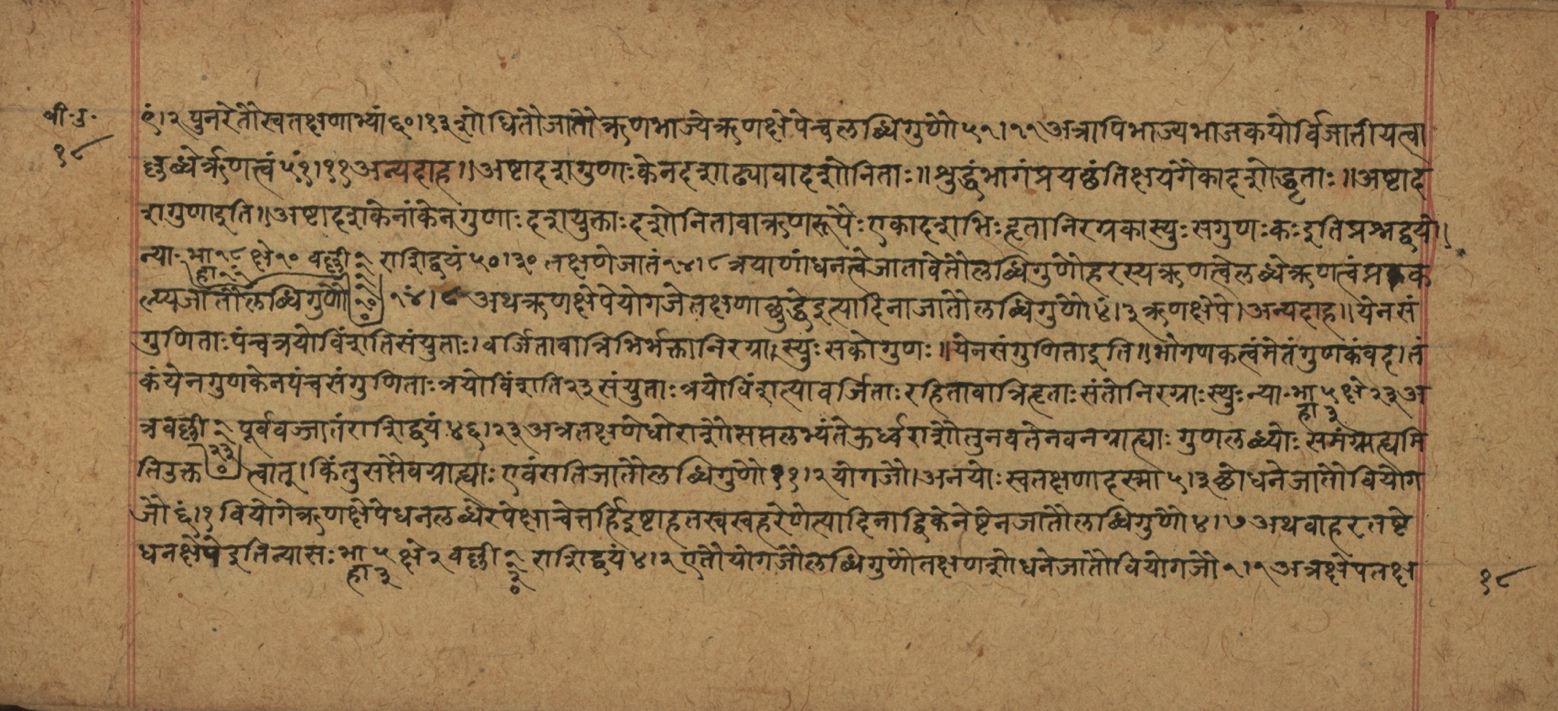 बी॰उ॰
१८
९ं।२ पुनरेतौस्वतक्षणाभ्यां६०।१३शोधितौजातौऋणभाज्येऋणक्षेपेचलब्धिगुणौ५१।११अत्रापिभाज्यभाजकयोर्विजातीयत्वा
ल्लब्धेर्ऋणत्वं५१ं।११अन्यदाह॥अष्टादशगुणाःकेनदशाढ्यावादशोनिताः॥शुद्धंभागंप्रयछंतिक्षयगैकादशोद्धृताः॥अष्टाद
शगुणाइति॥अष्टादशकेनांकेनगुणाःदशयुक्ताःदशोनितावाऋणरूपैःएकादशभिःहृतानिरग्रकास्युःसगुणःकःइतिप्रश्नद्वये।
न्या॰भा१८क्षे१०वल्ली१राशिद्वयं५०।३०तक्षणेजातं१४।८त्रयाणांधनत्वेजातावेतौलब्धिगुणौहरस्यऋणत्वेलब्धेऋणत्वंप्रक
हा११
ल्प्यजातौलब्धिगुणौ १४ं।८ अथऋणक्षेपेयोगजेतक्षणाछुद्धेइत्यादिनाजातौलब्धिगुणौ४ं।३ऋणक्षेपे।अन्यदाह॥येनसं
गुणिताःपंचत्रयोविंशतिसंयुताः।वर्जितावात्रिभिर्भक्तानिरग्राःस्युःसकोगुणः॥येनसंगुणिताइति॥भोगणकत्वंमेतंगुणकंवद।तं
कंयेनगुणकेनपंचसंगुणिताःत्रयोविंशति२३संयुताःत्रयोविंशत्यावर्जिताःरहितावात्रिहृताःसंतोनिरग्राःस्युःन्या॰भा५क्षे२३अ
हा३
त्रवल्ली१पूर्ववज्जातंराशिद्वयं४६।२३अत्रतक्षणेधोराशौसप्तलभ्यंतेऊर्ध्वराशौतुनवतेनवनग्राह्याःगुणलब्ध्योःसमंग्राह्यमि
तिउक्तत्वात्।किंतुसप्तैवग्राह्याःएवंसतिजातौलब्धिगुणौ११।२योगजौ।अनयोःस्वतक्षणादस्मा५।३छोधनेजातौवियोग
जौ६ं।१वियोगेऋणक्षेपेधनलब्धेरपेक्षाचेत्तर्हिइष्टाहतस्वस्वहरेणेत्यादिनाद्विकेनेष्टेनजातौलब्धिगुणौ४।७अथवाहरतष्टे
धनक्षेपेइतिन्यासःभा५क्षे२वल्ली१राशिद्वयं४।२एतौयोगजौलब्धिगुणौतक्षणशोधनेजातौवियोगजौ१।१अत्रक्षेपतक्ष
हा३
१८